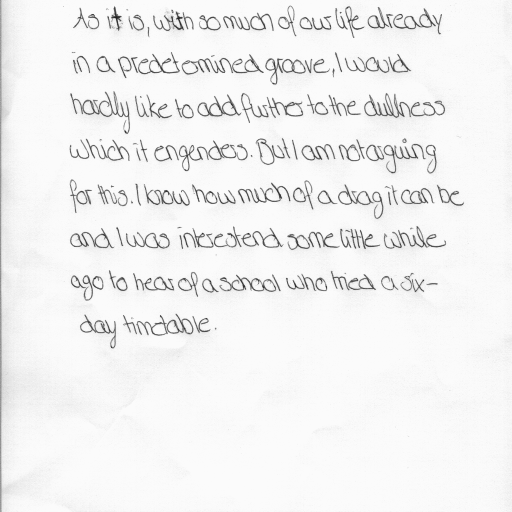 As it is, with so much of our life already
in a predetomined groove, I would
hardly like to add further to the dullness
which it engenders. But I am not arguing
for this. I know how much of a drag it can be
and I was interestend some little while
ago to hear of a school who tried a six-
day timetable.